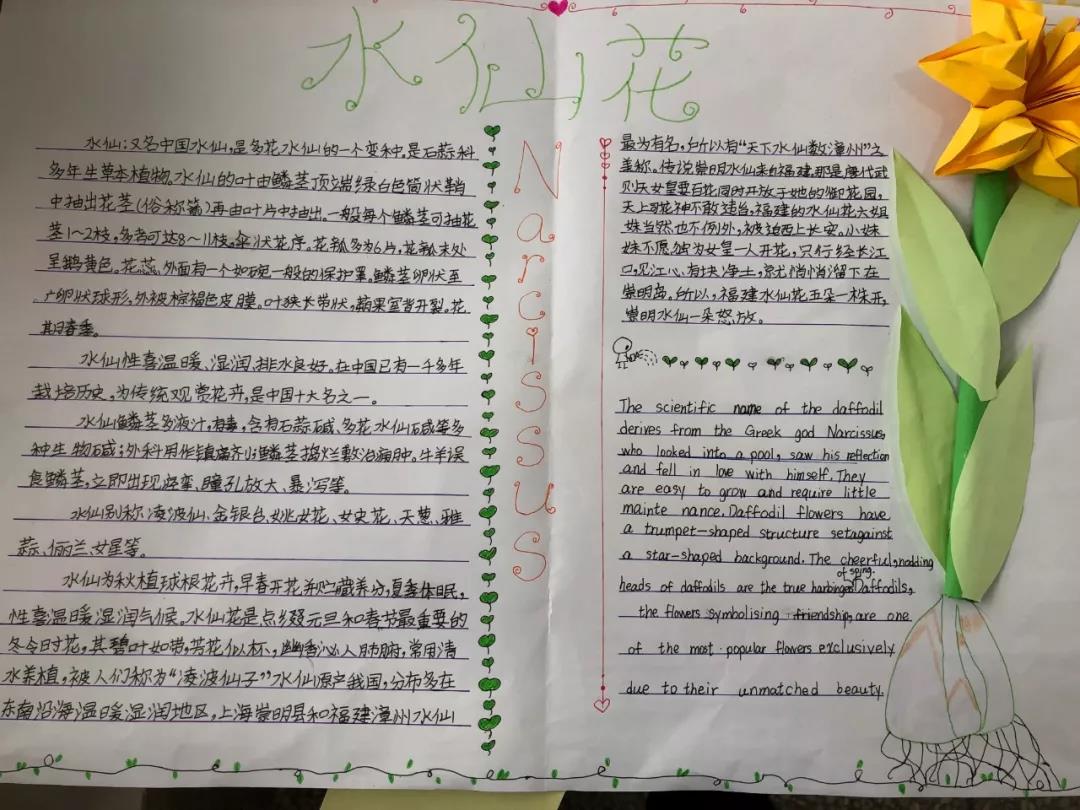 水仙花
水仙:又名中国水仙,是多花水仙的一个变种。是石蒜科
多年生草本植物。水仙的叶由鳞茎顶端绿白色筒状鞘
中抽出花茎(俗称箭)再由叶片中抽出。一般每个鳞茎可抽花
茎1~2枝,多者可达8~11枝,伞状花序。花瓣多为6片,花瓣末处
呈鹅黄色。花蕊外面有一个如碗一般的保护罩。鳞茎卵状至
广卵状球形,外被棕褐色皮膜。叶狭长带状,蒴果室背开裂。花
期春季。
水仙性喜温暖、湿润、排水良好。在中国已有一千多年
栽培历史,为传统观赏花卉,是中国十大名之一。
水仙鳞茎多液汁,有毒,含有石蒜碱、多花水仙碱等多
种生物碱;外科用作镇痛剂;鳞茎捣烂敷治痈肿。牛羊误
食鳞茎,立即出现痉挛、瞳孔放大、暴泻等。
水仙别称凌波仙、金银台、姚女花、女史花、天葱、雅
蒜、俪兰、女星等。
水仙为秋植球根花卉,早春开花并贮藏养分,夏季休眠,
性喜温暖湿润气候。水仙花是点缀元旦和春节最重要的
冬令时花,其碧叶如带,芳花似杯,幽香沁人肺腑,常用清
水养植,被人们称为“凌波仙子”水仙原产我国,分布多在
东南沿海温暖湿润地区,上海崇明县和福建漳州水仙
Narcissus
最为有名,所以有“天下水仙数漳州”之
美称。传说崇明水仙来自福建,那是唐代武
则天女皇要百花同时开放于她的御花园,
天上司花神不敢违旨,福建的水仙花六姐
妹当然也不例外,被迫西上长安。小妹
妹不愿独为女皇一人开花,只行经长江
口,见江心有块净土,就悄悄溜下在
崇明岛。所以,福建水仙花五朵一株开,
崇明水仙一朵怒放。
The scientific name of the daffodil
derives from the Greek god Narcissus,
who looked into a pool, saw his reflection
and fell in love with himself. They
are easy to grow and require little
mainte nance. Daffodil flowers have
a trumpet-shaped structure setagainst
a star-shaped background. The cheerful, nodding
heads of daffodils are the true harbingers of spring. Daffodils,
the flowers symbolising friendship, are one
of the most popular flowers exclusively
due to their unmatched beauty